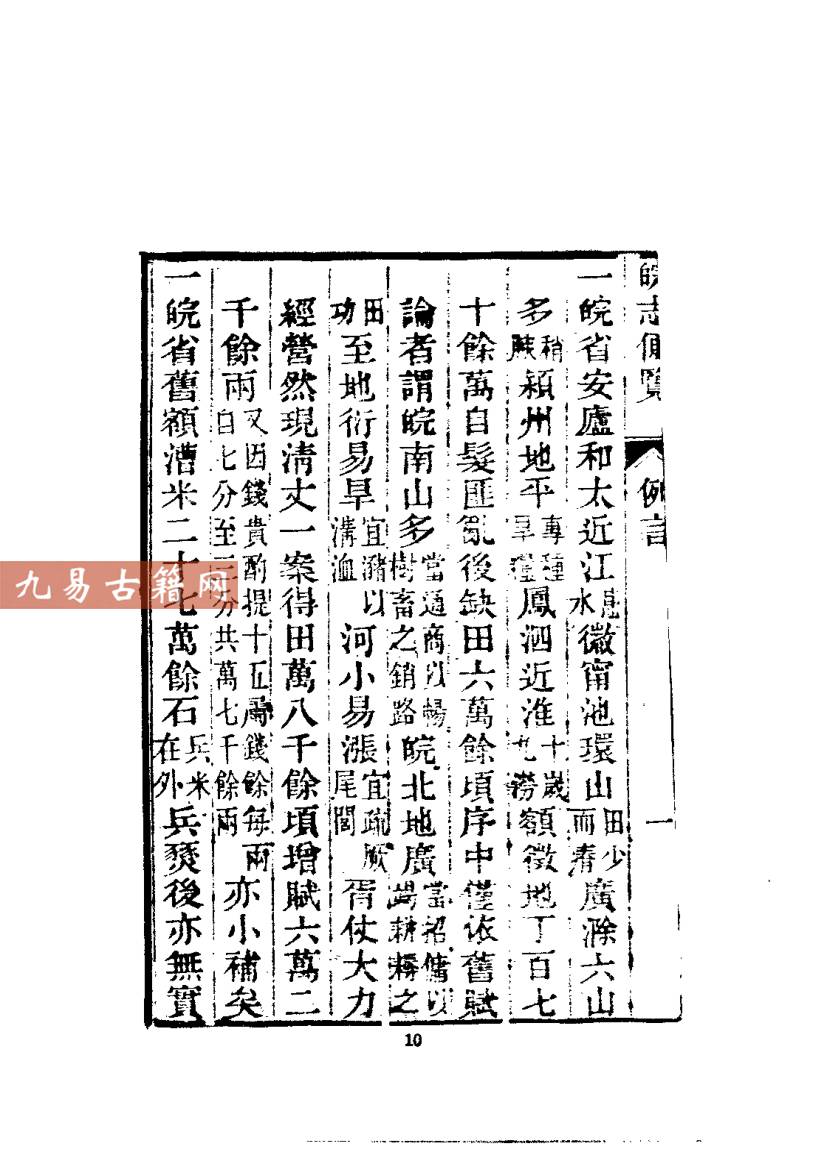 皖志便覽 例言 一
一皖省安廬和太近江水徽甯池環山田少而瘠廣滁六山
多稍潁州地平專種旱糧鳳泗近淮十歲九澇額徵地丁百七
十餘萬自髮匪亂後缺田六萬餘頃序中僅依舊賦
論者謂皖南山多當通商以暢樹畜之銷路皖北地廣當招傭以助耕耨之
田功至地衍易旱宜瀦以溝洫河小易漲宜疏厥尾閭胥仗大力
經營然現清丈一案得田萬八千餘頃增賦六萬二
千餘兩又因錢貴酌提十五屬錢餘每兩自七分至三分共萬七千餘兩亦小補矣
一皖省舊額漕米二十七萬餘石兵米在外兵燹後亦無實
九易古籍网
10